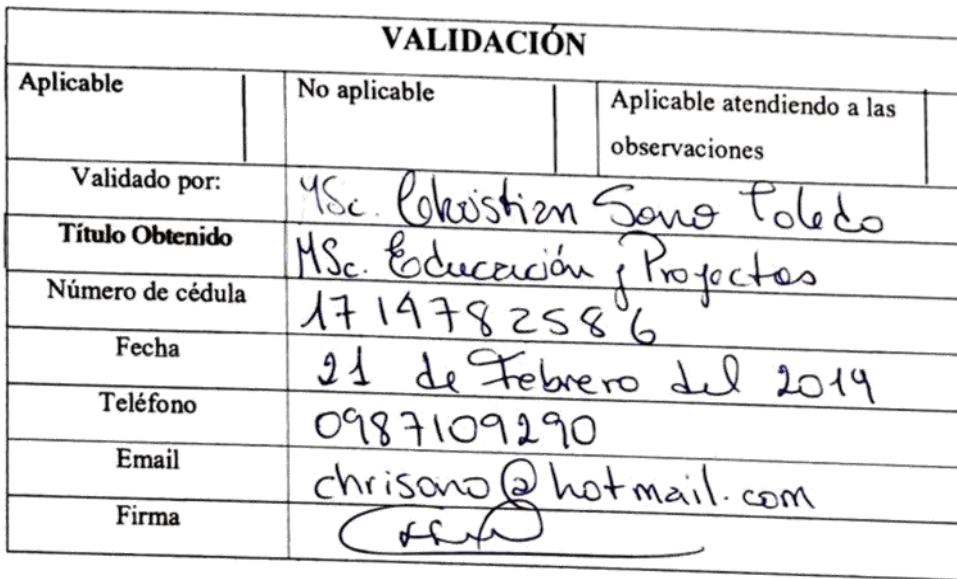 VALIDACIÓN
Aplicable No aplicable Aplicable atendiendo a las
observaciones
Validado por: MSc. Christian Sono Toledo
Título Obtenido MSc. Educación y Proyectos
Número de cédula 1714782586
Fecha 21 de Febrero del 2019
Teléfono 0987109290
Email chrisono@hotmail.com
Firma